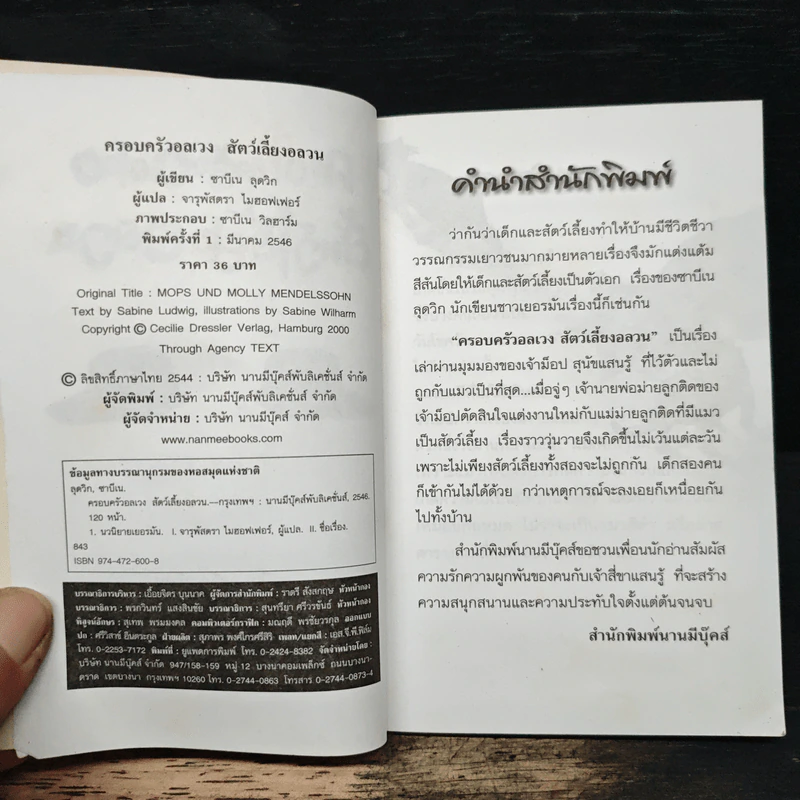 ครอบครัวอลเวง สัตว์เลี้ยงอลวน
ผู้เขียน : ซาบีเน ลุดวิก
ผู้แปล : จารุพัสตรา ไมฮอฟเฟอร์
ภาพประกอบ : ซาบีเน วิลฮาร์ม
พิมพ์ครั้งที่ 1 : มีนาคม 2546
ราคา 36 บาท
Original Title : MOPS UND MOLLY MENDELSSOHN
Text by Sabine Ludwig, illustrations by Sabine Wilharm
Copyright © Cecilie Dressler Verlag, Hamburg 2000
Through Agency TEXT
© ลิขสิทธิ์ภาษาไทย 2544 : บริษัท นานมีบุ๊คส์พับลิเคชั่นส์ จำกัด
ผู้จัดพิมพ์ : บริษัท นานมีบุ๊คส์พับลิเคชั่นส์ จำกัด
ผู้จัดจำหน่าย : บริษัท นานมีบุ๊คส์ จำกัด
www.nanmeebooks.com
ข้อมูลทางบรรณานุกรมของหอสมุดแห่งชาติ
ลุดวิก, ซาบีเน.
ครอบครัวอลเวง สัตว์เลี้ยงอลวน.—กรุงเทพฯ : นานมีบุ๊คส์พับลิเคชั่นส์, 2546.
120 หน้า.
1. นวนิยายเยอรมัน. I. จารุพัสตรา ไมฮอฟเฟอร์, ผู้แปล. II. ชื่อเรื่อง.
843
ISBN 974-472-600-8
บรรณาธิการบริหาร : เอื้อยจิตร บุนนาค ผู้จัดการสำนักพิมพ์ : ราตรี สังสกฤษ หัวหน้ากอง
บรรณาธิการ : พรกวินทร์ แสงสินชัย บรรณาธิการ : สุนทรียา ศรีวรขันธ์ หัวหน้ากอง
พิสูจน์อักษร : สุเทพ พรมมงคล คอมพิวเตอร์กราฟิก : มณฤดี พรชัยวรกุล ออกแบบ
ปก : ศรีวิสาข์ อินตระกูล ฝ่ายผลิต : สุภาพร พงศ์ไกรศรีสิริ เพลท/แยกสี : เอส.ซี.พี.ฟิล์ม
โทร. 0-2253-7172 พิมพ์ที่ : ยูแพดการพิมพ์ โทร. 0-2424-8382 จัดจำหน่ายโดย :
บริษัท นานมีบุ๊คส์ จำกัด 947/158-159 หมู่ 12 บางนาคอมเพล็กซ์ ถนนบางนา-
ตราด เขตบางนา กรุงเทพฯ 10260 โทร. 0-2744-0863 โทรสาร 0-2744-0873-4
คำนำสำนักพิมพ์
ว่ากันว่าเด็กและสัตว์เลี้ยงทำให้บ้านมีชีวิตชีวา
วรรณกรรมเยาวชนมากมายหลายเรื่องจึงมักแต่งแต้ม
สีสันโดยให้เด็กและสัตว์เลี้ยงเป็นตัวเอก เรื่องของซาบีเน
ลุดวิก นักเขียนชาวเยอรมันเรื่องนี้ก็เช่นกัน
“ครอบครัวอลเวง สัตว์เลี้ยงอลวน” เป็นเรื่อง
เล่าผ่านมุมมองของเจ้าม็อป สุนัขแสนรู้ ที่ไว้ตัวและไม่
ถูกกับแมวเป็นที่สุด...เมื่อจู่ๆ เจ้านายพ่อม่ายลูกติดของ
เจ้าม็อปตัดสินใจแต่งงานใหม่กับแม่ม่ายลูกติดที่มีแมว
เป็นสัตว์เลี้ยง เรื่องราววุ่นวายจึงเกิดขึ้นไม่เว้นแต่ละวัน
เพราะไม่เพียงสัตว์เลี้ยงทั้งสองจะไม่ถูกกัน เด็กสองคน
ก็เข้ากันไม่ได้ด้วย กว่าเหตุการณ์จะลงเอยก็เหนื่อยกัน
ไปทั้งบ้าน
สำนักพิมพ์นานมีบุ๊คส์ขอชวนเพื่อนนักอ่านสัมผัส
ความรักความผูกพันของคนกับเจ้าสี่ขาแสนรู้ ที่จะสร้าง
ความสนุกสนานและความประทับใจตั้งแต่ต้นจนจบ
สำนักพิมพ์นานมีบุ๊คส์